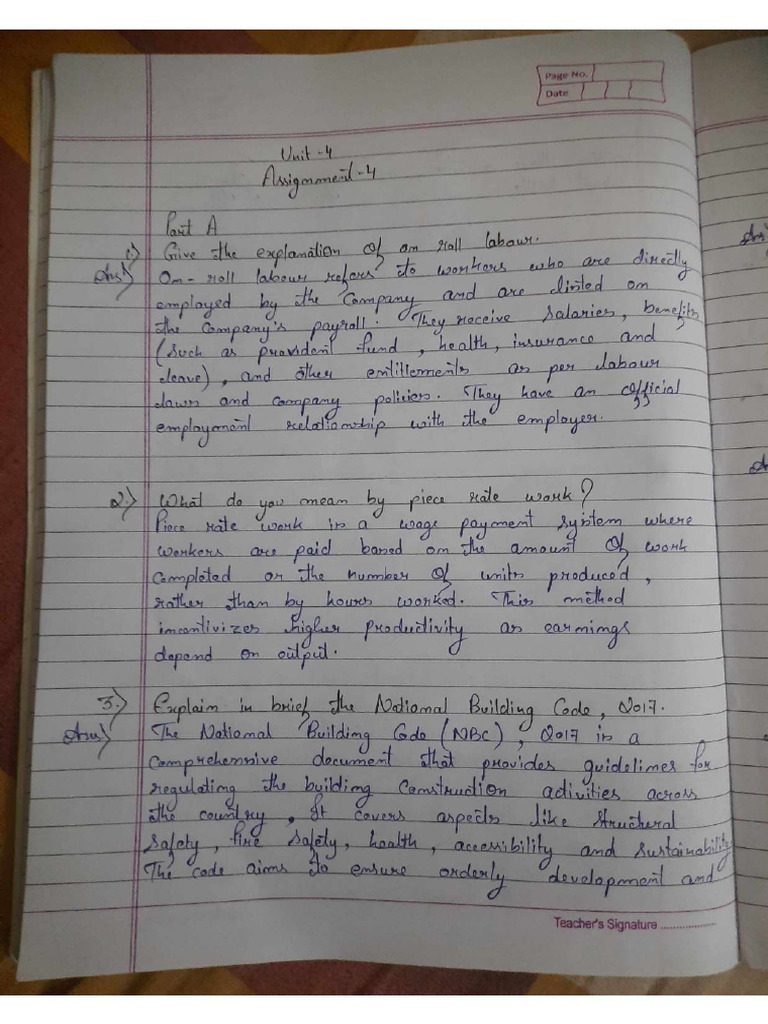 Page No.
Date
Unit -4
Assignment -4
Part A
1.) Give the explanation of on roll labour.
Ans) On-roll labour refers to workers who are directly
employed by the company and are listed on
the company's payroll. They receive salaries, benefits
(such as provident fund, health, insurance and
leave), and other entitlements as per labour
laws and company policies. They have an official
employment relationship with the employer.
2.) What do you mean by piece rate work?
Piece rate work is a wage payment system where
workers are paid based on the amount of work
completed or the number of units produced,
rather than by hours worked. This method
incentivizes higher productivity as earnings
depend on output.
3.) Explain in brief the National Building Code, 2017.
Ans) The National Building Code (NBC), 2017 is a
comprehensive document that provides guidelines for
regulating the building construction activities across
the country, It covers aspects like structural
safety, fire safety, health, accessibility and sustainability
The code aims to ensure orderly development and
Teacher's Signature ..................
Ans